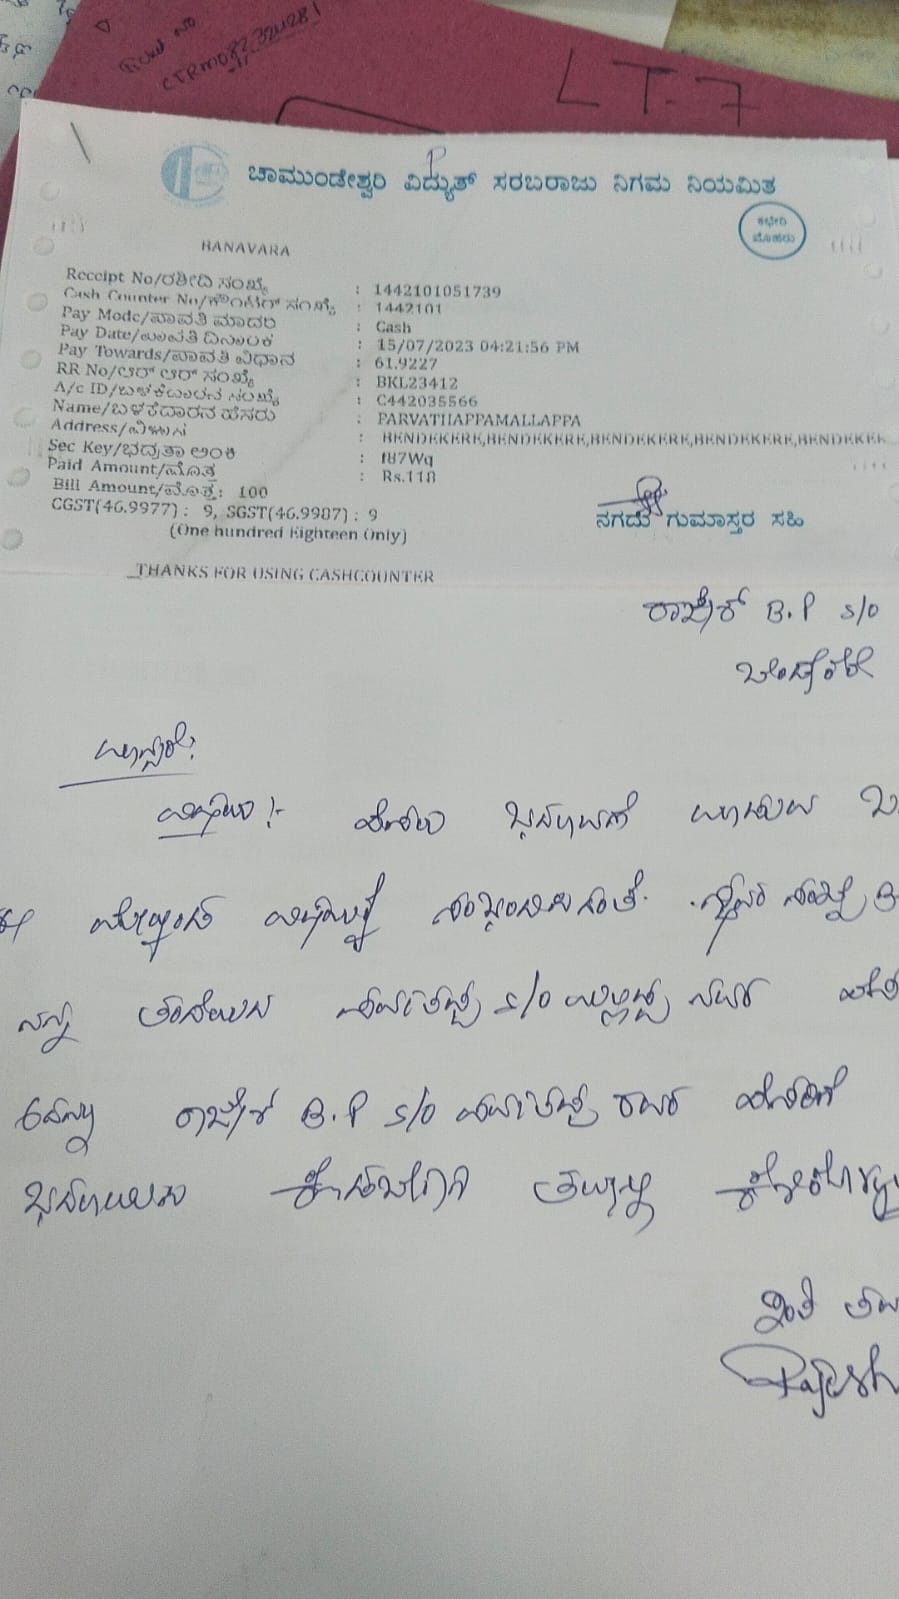 Ticket No
LT-7
ಚಾಮುಂಡೇಶ್ವರಿ ವಿದ್ಯುತ್ ಸರಬರಾಜು ನಿಗಮ ನಿಯಮಿತ
ಕಛೇರಿ
ಮೊಹರು
BANAVARA
Receipt No/ರಶೀದಿ ಸಂಖ್ಯೆ : 1442101051739
Cash Counter No/ಕೌಂಟರ್ ಸಂಖ್ಯೆ : 1442101
Pay Mode/ಪಾವತಿ ಮಾದರಿ : Cash
Pay Date/ಪಾವತಿ ದಿನಾಂಕ : 15/07/2023 04:21:56 PM
Pay Towards/ಪಾವತಿ ವಿಧಾನ : 61.9227
RR No/ಆರ್ ಆರ್ ಸಂಖ್ಯೆ : BKL23412
A/c ID/ಬಳಕೆದಾರನ ಸಂಖ್ಯೆ : C442035566
Name/ಬಳಕೆದಾರನ ಹೆಸರು : PARVATHAPPAMALLAPPA
Address/ವಿಳಾಸ : BENDEKERE,BENDEKERE,BENDEKERE,BENDEKERE,BENDEKER
Sec Key/ಭದ್ರತಾ ಅಂಕಿ : f87Wq
Paid Amount/ಮೊತ್ತ : Rs.118
Bill Amount/ಮೊತ್ತ: 100
CGST(46.9977) : 9, SGST(46.9987) : 9
(One hundred Eighteen Only)
ನಗದು ಗುಮಾಸ್ತರ ಸಹಿ
THANKS FOR USING CASHCOUNTER
ರಾಜೇಶ್ B.P S/O
ಬೆಂಡೇಕೆರೆ
ಮಾನ್ಯರೇ,
ವಿಷಯ :- ಹೆಸರು ಬದಲಾವಣೆ ಮಾಡುವ ಬ
ಮೇಲ್ಕಂಡ ವಿಷಯಕ್ಕೆ ಸಂಬಂಧಿಸಿದಂತೆ.
ನನ್ನ ತಂದೆಯಾದ ಪರ್ವತಪ್ಪ S/O ಮಲ್ಲಪ್ಪ ರವರ
ರಾಜೇಶ್ B.P S/O ಪರ್ವತಪ್ಪ ರವರ ಹೆಸರಿಗೆ
ತಮ್ಮಲ್ಲಿ
ಇಂತಿ ತಮ್ಮ
Rajesh